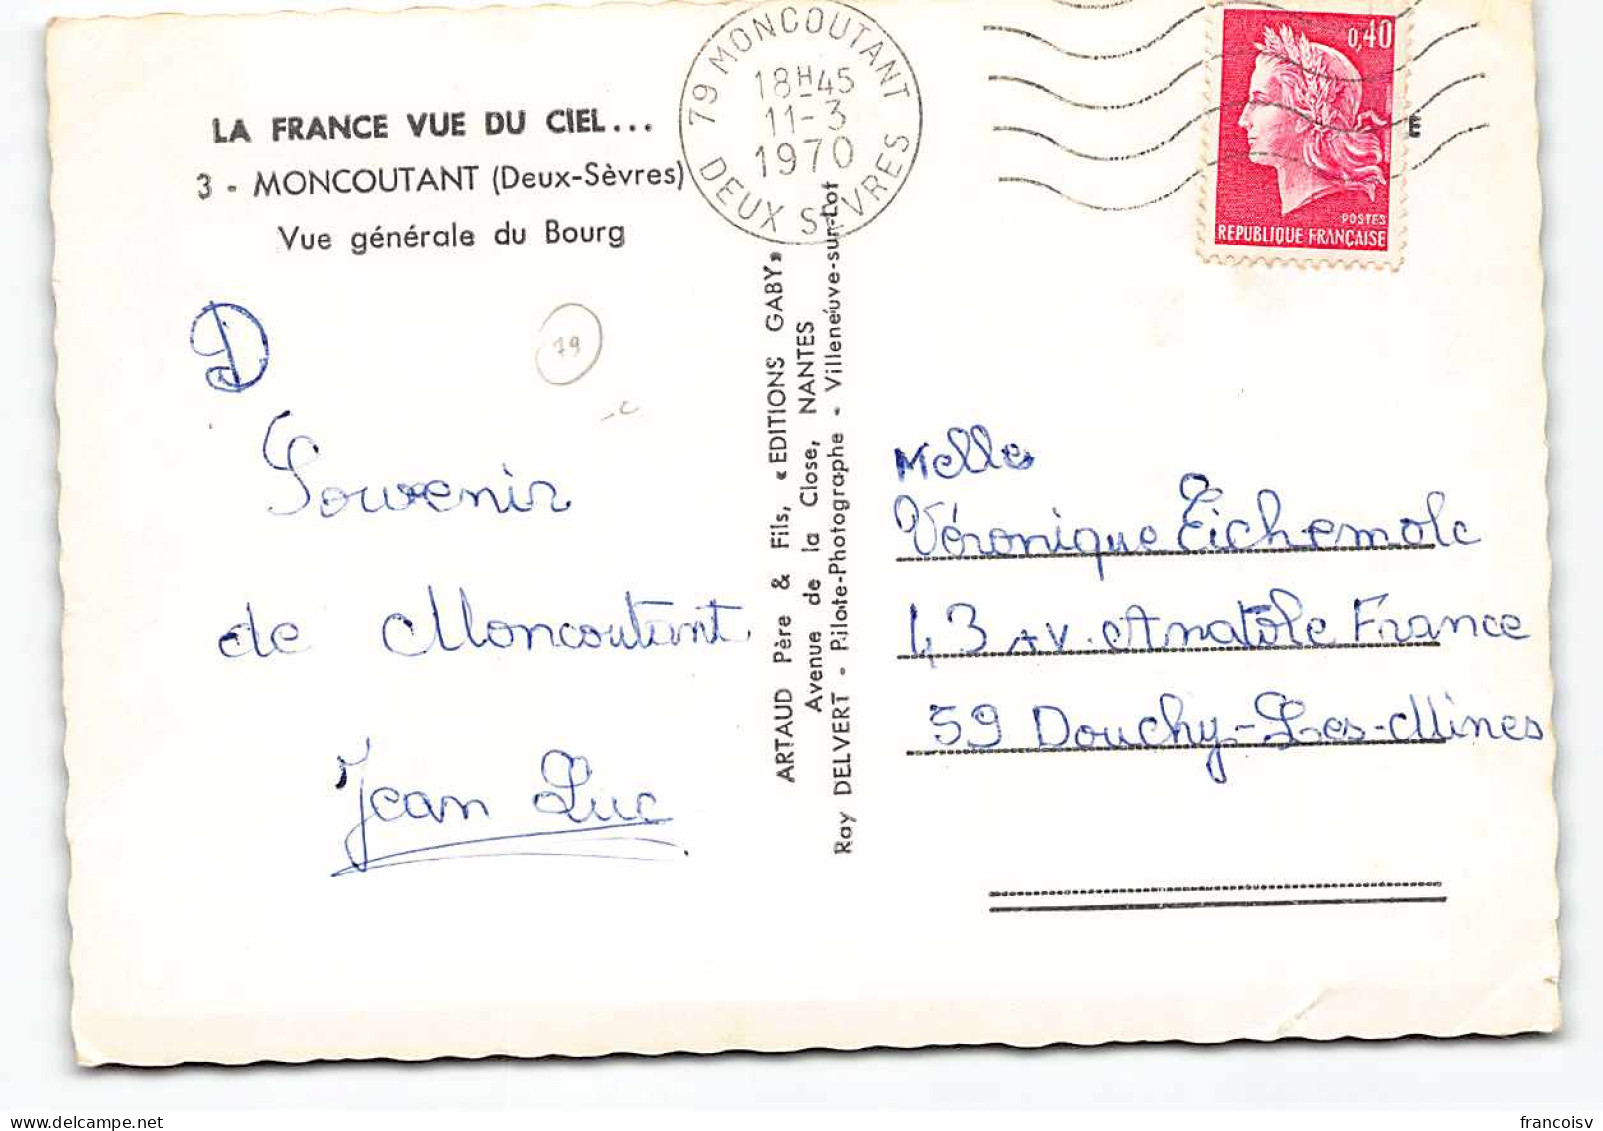 79 MONCOUTANT
18H45
11-3
1970
DEUX SEVRES
0,40
POSTES
REPUBLIQUE FRANÇAISE
E
LA FRANCE VUE DU CIEL...
3 - MONCOUTANT (Deux-Sèvres)
Vue générale du Bourg
D
79
Souvenir
de Moncoutant
Jean Luc
ARTAUD Père & Fils, « EDITIONS GABY »
Avenue de la Close, NANTES
Ray DELVERT - Pilote-Photographe - Villeneuve-sur-Lot
Melle
Véronique Eichemolc
43 AV. Anatole France
59 Douchy-Les-Mines
francoisv